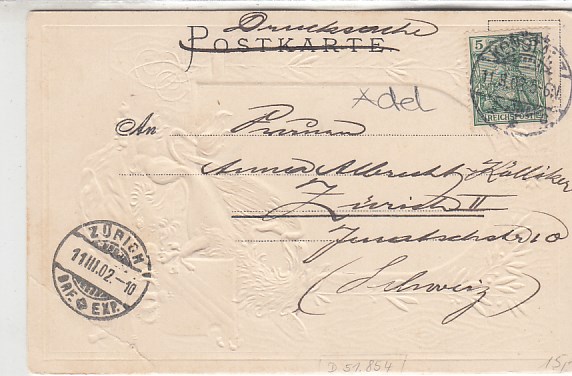 Drucksache
POSTKARTE
5
REICHSPOST
Adel
An Frauen
Anna Albrecht-Kölliker
Zürich II
(Schweiz)
ZÜRICH
11 III.02.-10
BRF. EXP.
D 51.854
15,-